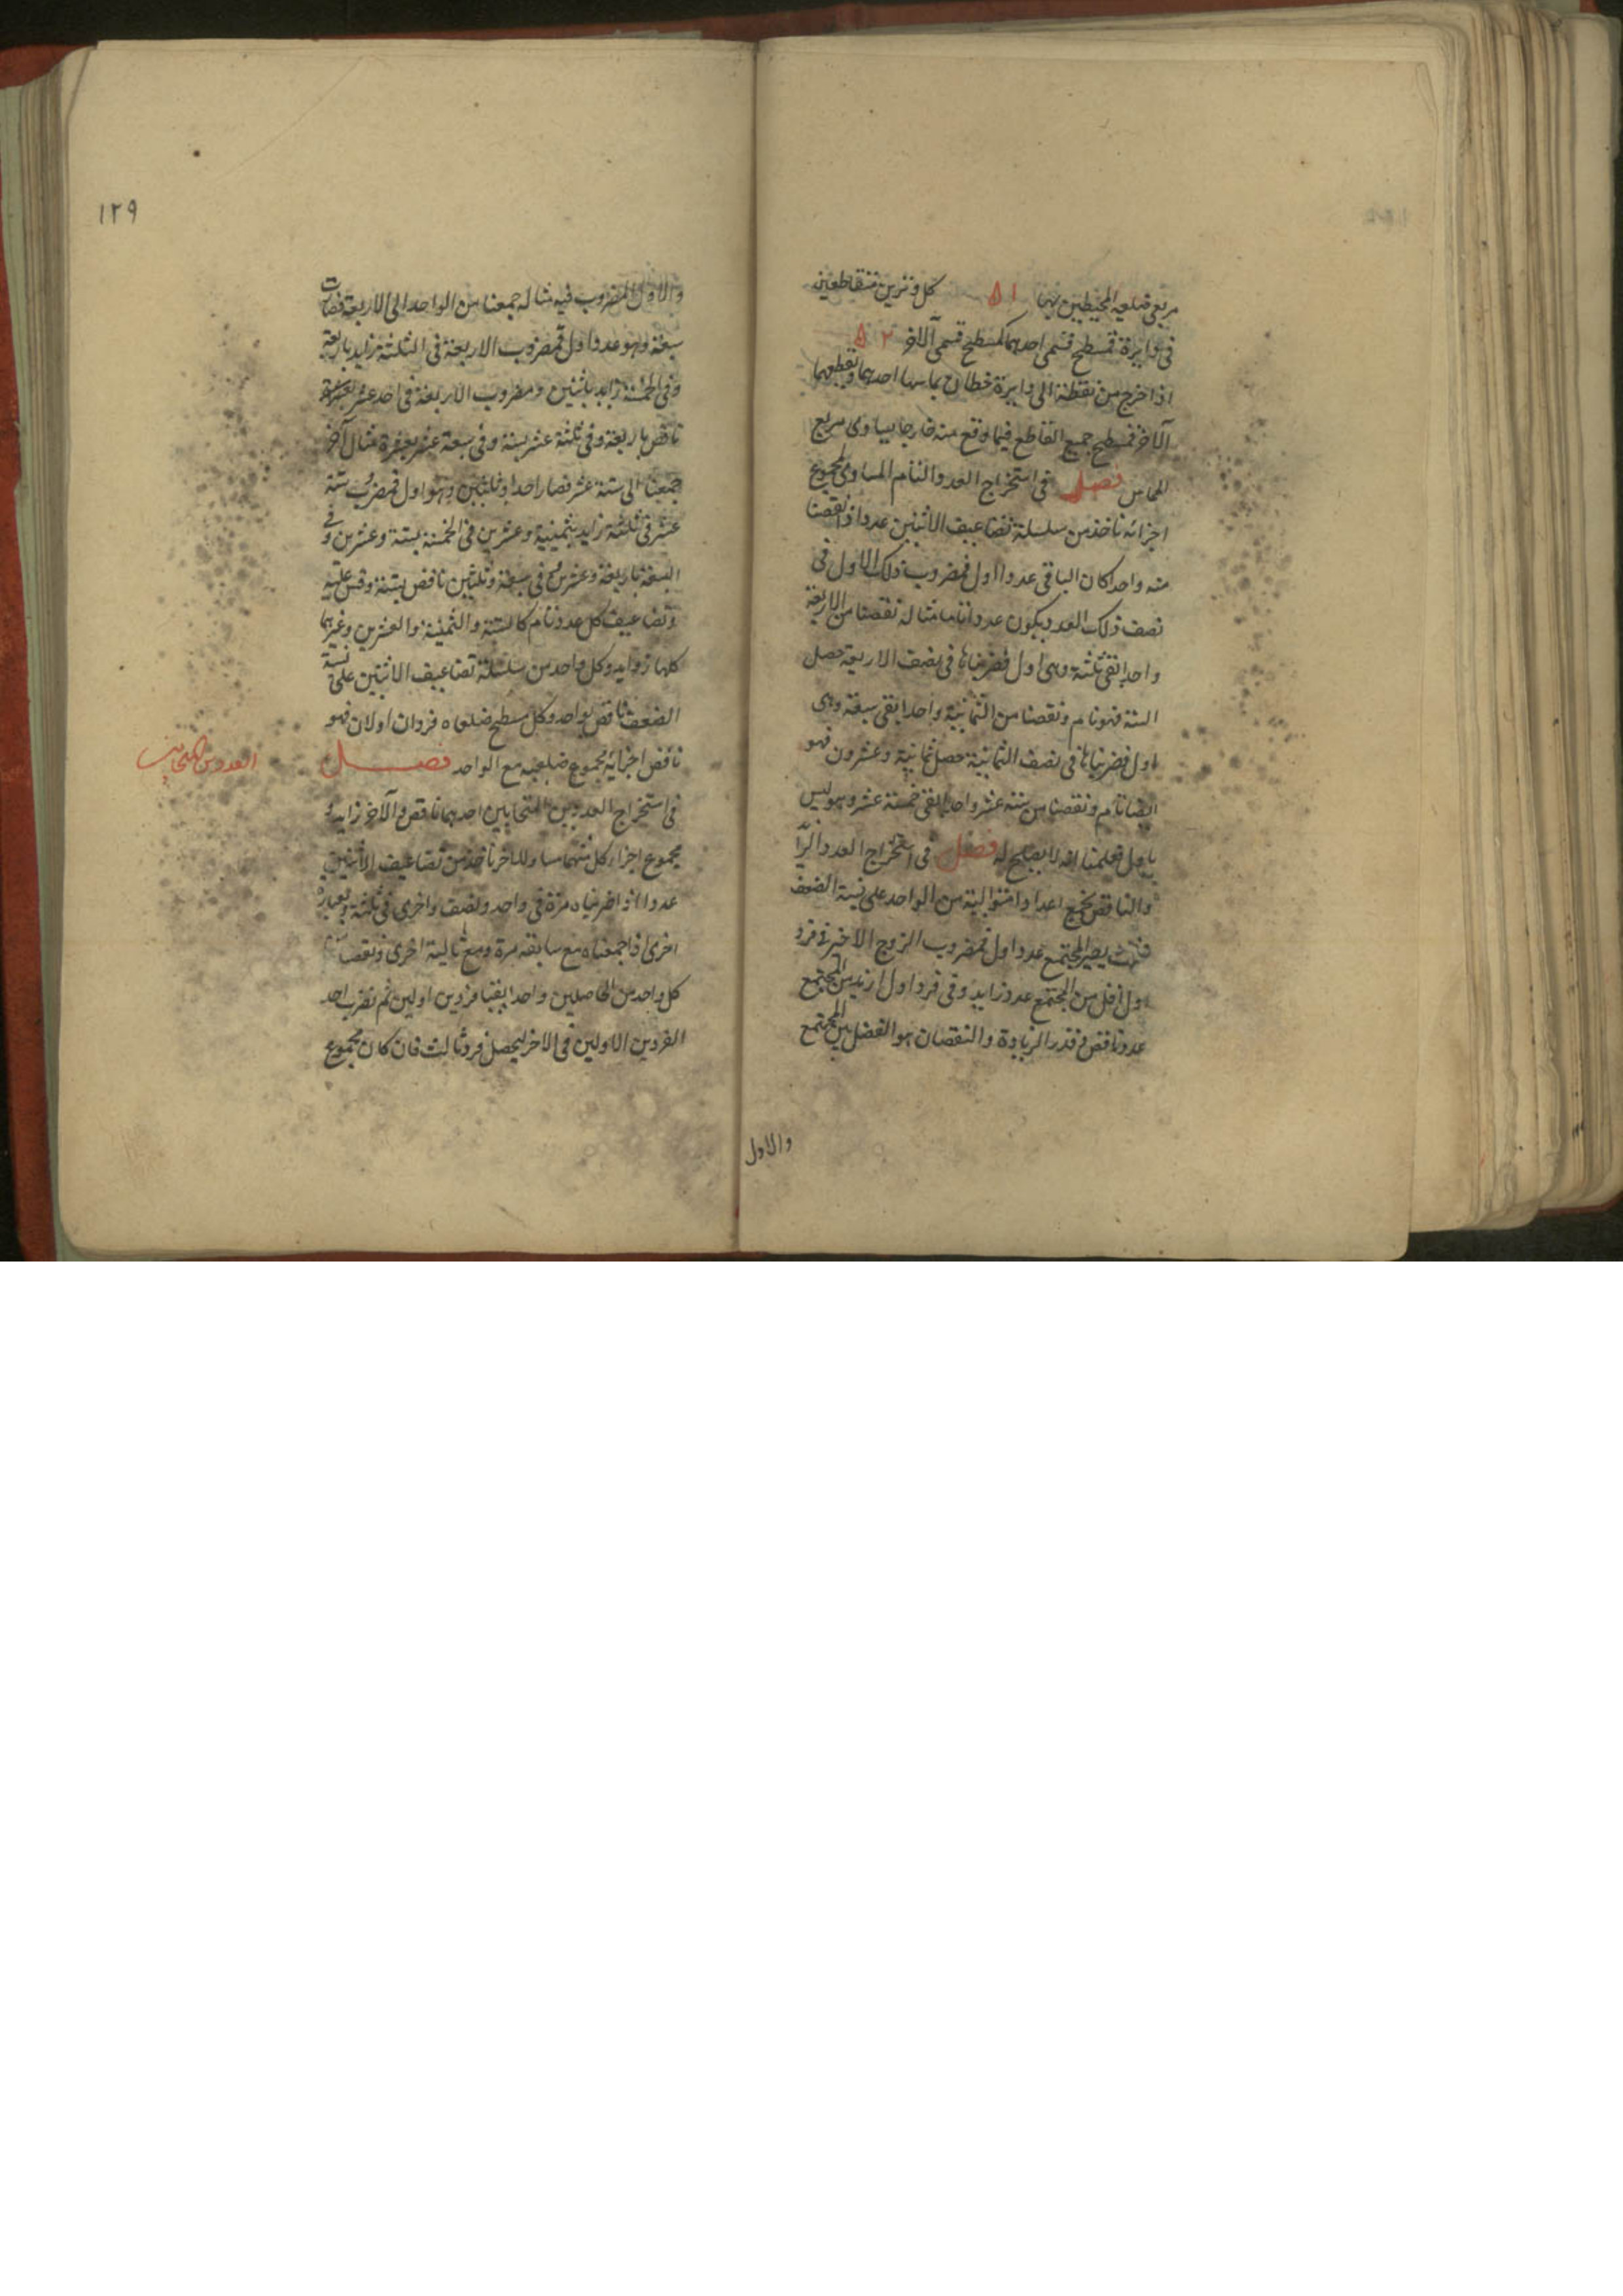 مربعى ضلعيه المحيطين بها ا ۵ كل وترين متقاطعين
فى دايرة فمسطح قسمى احدهما كمسطح قسمى الآخر ۲ ۵
اذا خرج من نقطة الى دايرة خطان يماسها احدهما ويقطعها
الآخر فمسطح جميع القاطع فيما وقع منه خارجا يساوى مربع
المماس فصل فى استخراج العدد التام المساوى لمجموع
اجزائه ناخذ من سلسلة تضاعيف الاثنين عددا اذا نقصنا
منه واحدا كان الباقى عددا اول فمضروب ذلك الاول فى
نصف ذلك العدد يكون عددا تاما مثاله نقصنا من الاربعة
واحدا بقى ثلثة وهى اول فضربناها فى نصف الاربعة حصل
الستة فهو تام ونقصنا من الثمانية واحدا بقى سبعة وهى
اول فضربناها فى نصف الثمانية حصل ثمانية وعشرون فهو
ايضا تام ونقصنا من ستة عشر واحدا بقى خمسة عشر وهو ليس
باول فعلمنا انه لا يصلح له فصل فى استخراج العدد الزا
والناقص نجمع اعدادا متوالية من الواحد على نسبة الضعف
يصير المجتمع عددا اول فمضروب الزوج الاخير فى فرد
اول اقل من المجتمع عدد زايد وفى فرد اول ازيد من المجتمع
عدد ناقص وقدر الزيادة والنقصان هو الفضل بين المجتمع
والاول
١٢٩
والاول المضروب فيه مثاله جمعنا من الواحد الى الاربعة فصارت
سبعة وهو عدد اول فمضروب الاربعة فى الثلثة زايد باربعة
وفى الخمسة زايد باثنين ومضروب الاربعة فى احد عشر
ناقص باربعة وفى ثلثة عشر بستة وفى سبعة عشر بعشرة مثال آخر
جمعنا الى ستة عشر فصار احدا وثلثين وهو اول فمضروب ستة
عشر فى ثلثة زايد بثمنية وعشرين وفى الخمسة بستة وعشرين وفى
السبعة باربعة وعشرين وفى سبعة وثلثين ناقص بستة وقس عليه
وتضاعيف كل عدد تام كالستة والثمنية والعشرين وغيرهما
كلها زوايد وكل واحد من سلسلة تضاعيف الاثنين على نسبة
الضعف ناقص بواحد وكل مسطح ضلعاه فردان اولان فهو
ناقص اجزائه مجموع ضلعيه مع الواحد فصل
العددين المتحابين
فى استخراج العددين المتحابين احدهما ناقص والآخر زايد و
مجموع اجزاء كل منهما مساو للآخر ناخذ من تضاعيف الاثنين
عددا اذا ضربناه مرة فى واحد ونصف واخرى فى ثلثة وبعبارة
اخرى اذا جمعناه مع سابقه مرة ومع تاليه اخرى ونقصنا من
كل واحد من الحاصلين واحدا بقيا فردين اولين ثم نضرب احد
الفردين الاولين فى الآخر ليحصل فرد ثالث فان كان مجموع